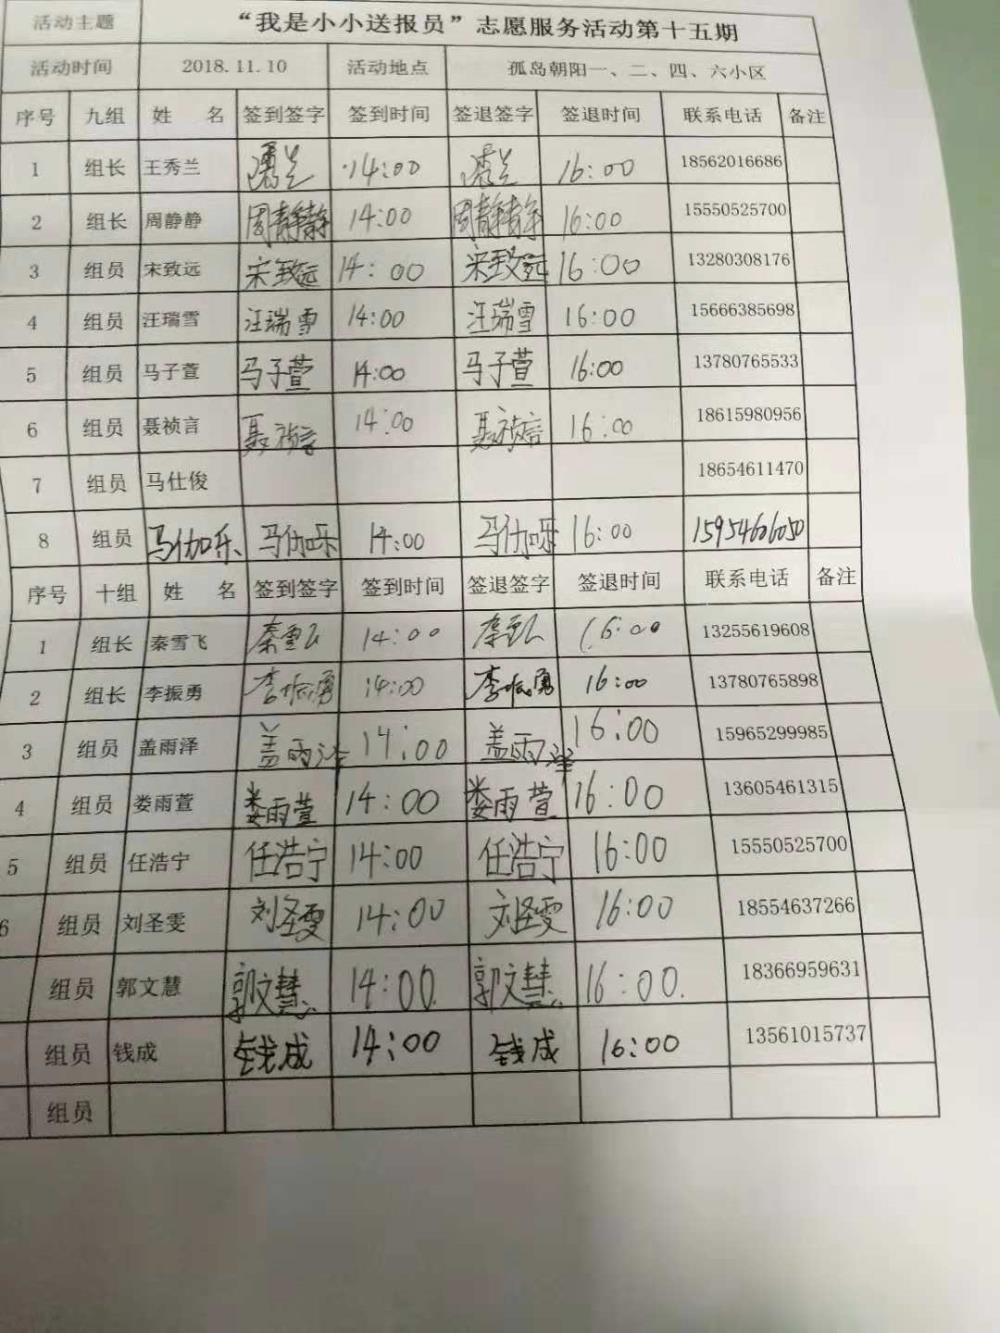 活动主题 “我是小小送报员”志愿服务活动第十五期
活动时间 2018.11.10 活动地点 孤岛朝阳一、二、四、六小区
序号 九组 姓 名 签到签字 签到时间 签退签字 签退时间 联系电话 备注
1 组长 王秀兰 14:00 16:00 18562016686
2 组长 周静静 周静静 14:00 周静静 16:00 15550525700
3 组员 宋致远 宋致远 14:00 宋致远 16:00 13280308176
4 组员 汪瑞雪 汪瑞雪 14:00 汪瑞雪 16:00 15666385698
5 组员 马子萱 马子萱 14:00 马子萱 16:00 13780765533
6 组员 聂祯言 聂祯言 14:00 聂祯言 16:00 18615980956
7 组员 马仕俊 18654611470
8 组员 马伽乐 马伽乐 14:00 马伽乐 16:00 15954606050
序号 十组 姓 名 签到签字 签到时间 签退签字 签退时间 联系电话 备注
1 组长 秦雪飞 秦雪飞 14:00 16:00 13255619608
2 组长 李振勇 李振勇 14:00 李振勇 16:00 13780765898
3 组员 盖雨泽 盖雨泽 14:00 盖雨泽 16:00 15965299985
4 组员 娄雨萱 娄雨萱 14:00 娄雨萱 16:00 13605461315
5 组员 任浩宁 任浩宁 14:00 任浩宁 16:00 15550525700
6 组员 刘圣雯 刘圣雯 14:00 刘圣雯 16:00 18554637266
组员 郭文慧 郭文慧 14:00 郭文慧 16:00 18366959631
组员 钱成 钱成 14:00 钱成 16:00 13561015737
组员